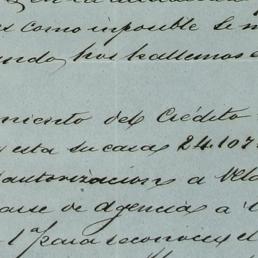 es como imposible se n
ando, nos hallemos e
miento del Crédito
esta su casa 24.107
autorizacion a
arse de agencia á
1ª para reconocer el